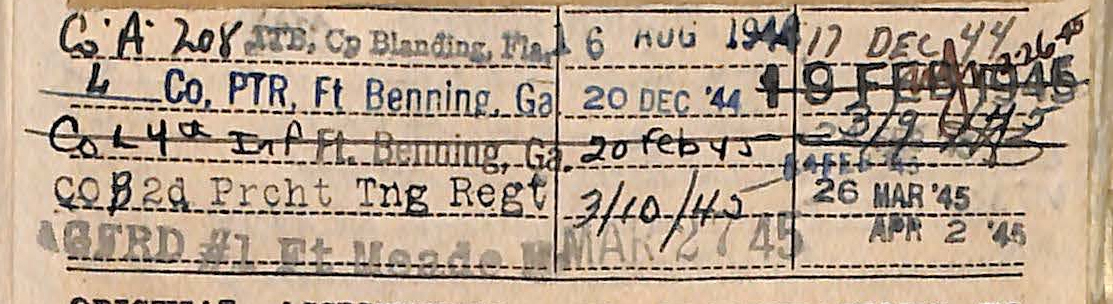 Co A 208 ITB, Cp Blanding, Fla. 16 AUG 1944 17 DEC 44
L Co. PTR, Ft Benning, Ga 20 DEC '44 19 FEB 1945
Co L 4th Inf Ft. Benning, Ga. 20 Feb 45 3/9/45
CO B 2d Prcht Tng Regt 3/10/45 26 MAR '45
AGFRD #1 Ft Meade M MAR 27 45 APR 2 '45